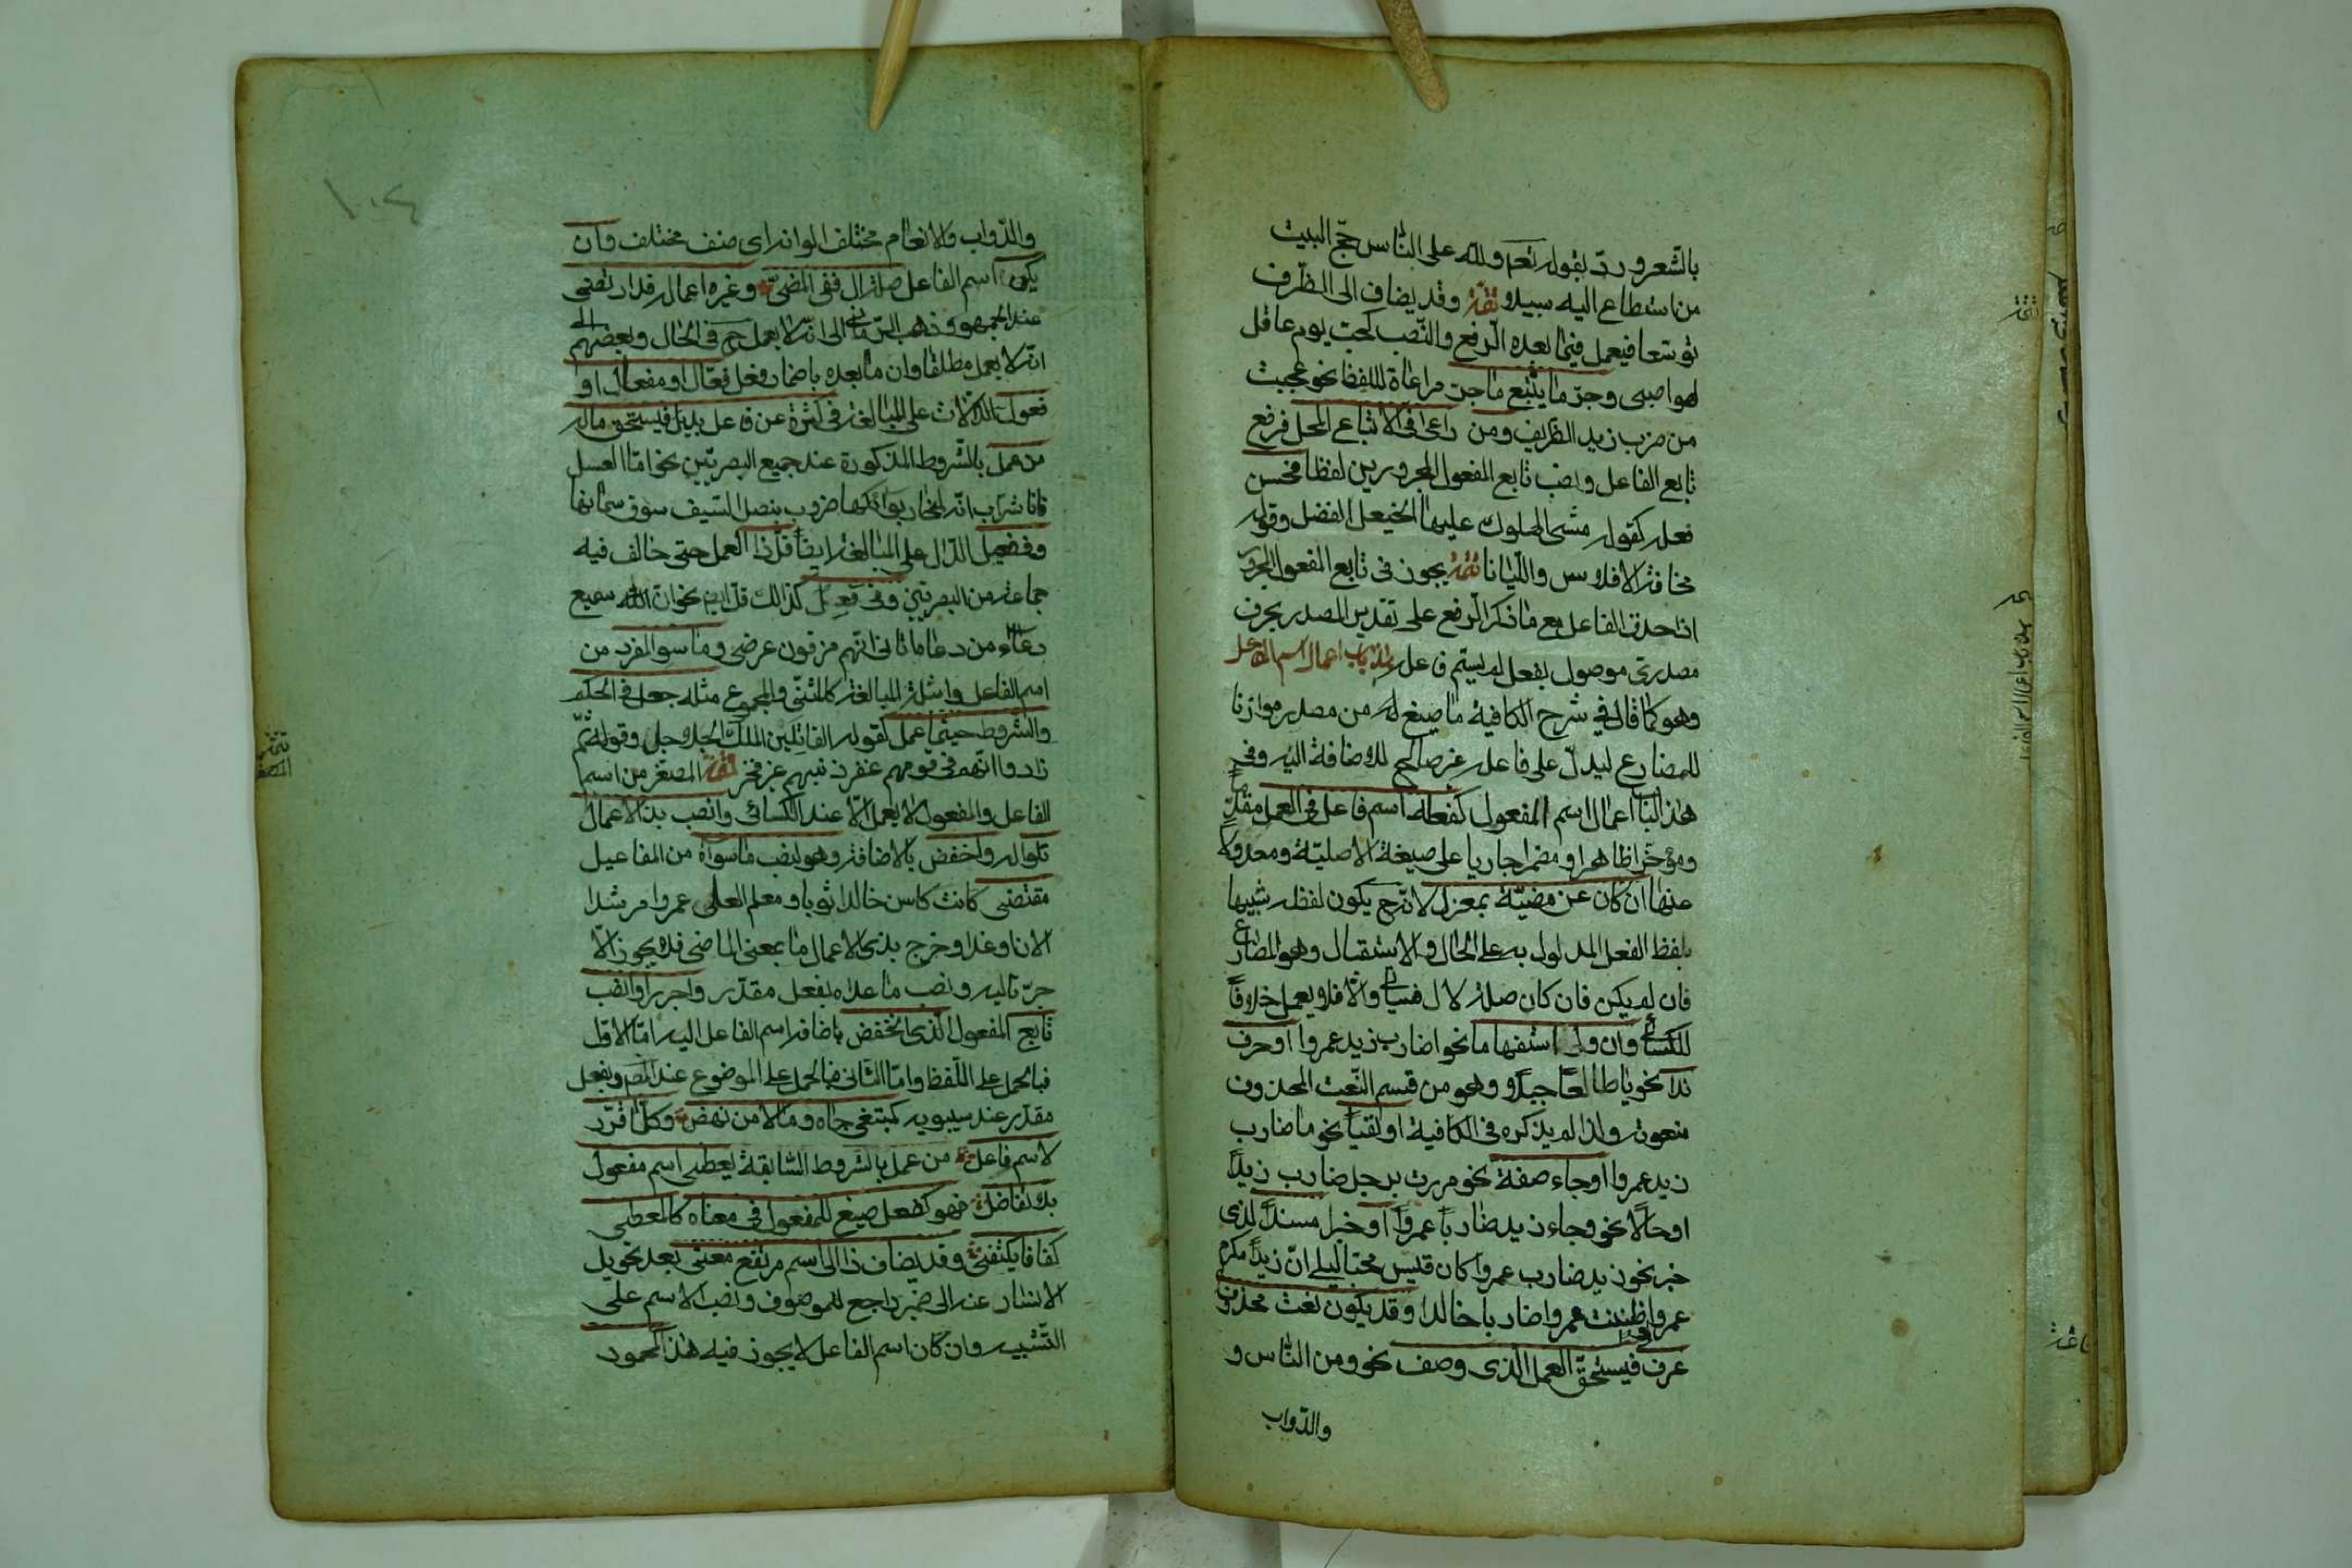 بالشعر ورد بقوله نعم ولله على الناس حج البيت
من استطاع اليه سبيلا تتمة وقد يضاف الى الظرف
توسعا فيعمل فيما بعده الرفع والنصب كحب يوم عاقل
لهوا صبى وجر ما يتبع ما جر مراعاة لللفظ نحو عجبت
من ضرب زيد الظريف ومن راعى فى الاتباع المحل فرفع
تابع الفاعل ونصب تابع المفعول المجرورين لفظا فحسن
فعله كقوله مشى الهلوك عليها الخيعل الفضل وقوله
مخافة الافلاس والليانا تتمة يجوز فى تابع المفعول المجرور
اذا حذف الفاعل مع ما ذكر الرفع على تقدير المصدر بحرف
مصدرى موصول بفعل لم يسم فاعله هذا باب اعمال اسم الفاعل
وهو كما قال فى شرح الكافية ما صيغ له من مصدر موازنا
للمضارع ليدل على فاعله غير صالح للاضافة اليه وفى
هذا الباب اعمال اسم المفعول كفعله اسم فاعل فى العمل مقدما
ومؤخرا ظاهرا ومضمرا جاريا على صيغة الاصلية ومعدولا
عنها ان كان عن مضيه بمعزل لانه ح يكون لفظه شبيها
بلفظ الفعل المدلول به على الحال والاستقبال وهو المضارع
فان لم يكن فان كان صلة لال فسياتى والا فلا يعمل خلافا
للكسائى وان ولى استفهاما نحو اضارب زيد عمروا او حرف
ندا نحو يا طالعا جبلا وهو من قسم النعت المحذوف
منعوته ولذا لم يذكره فى الكافية او نفيا نحو ما ضارب
زيد عمروا او جاء صفة نحو مررت برجل ضارب زيدا
او حالا نحو جاء زيد ضاربا عمروا او خبرا مسندا لذى
خبر نحو زيد ضارب عمروا كان قيس محبا ليلى ان زيدا مكرم
عمروا ظننت عمروا ضاربا خالدا وقد يكون نعت محذوف
عرف فيستحق العمل الذى وصف نحو ومن الناس و
والدواب
والدواب والانعام مختلف الوانه اى صنف مختلف وان
يكن اسم الفاعل صلة ال ففى المضى وغيره اعماله قد ارتضى
عند الجمهور وذهب الرمانى الى انه لا يعمل ح فى الحال وبعضهم الى
انه لا يعمل مطلقا وان ما بعده باضمار فعل فعال او مفعال او
فعول الدلالات على المبالغة فى كثرة عن فاعل بديل فيستحق ماله
من عمل بالشروط المذكورة عند جميع البصريين نحو اما العسل
فانا شراب انه لمنحار بوائكها ضروب بنصل السيف سوق سمانها
وفى فعيل الدال على المبالغة ايضا قل ذا العمل حتى خالف فيه
جماعة من البصريين وفى فعل كذالك قل ايضا نحو ان الله سميع
دعاء من دعاه اتانى انهم مزقون عرضى وما سوا المفرد من
اسم الفاعل وامثلة المبالغة كالمثنى والمجموع مثله جعل فى الحكم
والشروط حيثما عمل كقوله القاتلين الملك الحلاحل وقوله ثم
زادوا انهم فى قومهم غفر ذنبهم غير فخر تتمة المصغر من اسم
الفاعل والمفعول لا يعمل الا عند الكسائى وانصب بذى الاعمال
تلوا له واخفض بالاضافة وهو لنصب ما سواه من المفاعيل
مقتضى كانت كاس خالدا ثوبا ومعلم العلى عمروا مرشدا
الان او غدا وخرج بذى الاعمال ما بمعنى الماضى فلا يجوز الا
جر تاليه ونصب ما عداه بفعل مقدر واجرر او انصب
تابع المفعول الذى انخفض باضافة اسم الفاعل اليه اما الاول
فبالحمل على اللفظ واما الثانى فبالحمل على الموضع عند المص وبفعل
مقدر عند سيبويه كمبتغى جاه ومالا من نهض وكل ما قرر
لاسم فاعل من عمل بالشروط السابقة يعطى اسم مفعول
بلا تفاضل فهو كفعل صيغ للمفعول فى معناه كالمعطى
كفافا يكتفى وقد يضاف ذا الى اسم مرتفع معنى بعد تحويل
الاسناد عنه الى ضمير راجع للموصوف ونصب الاسم على
التشبيه وان كان اسم الفاعل لا يجوز فيه هذا كمحمود